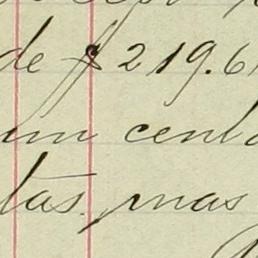 de $ 219.6
un cent
tas, mas